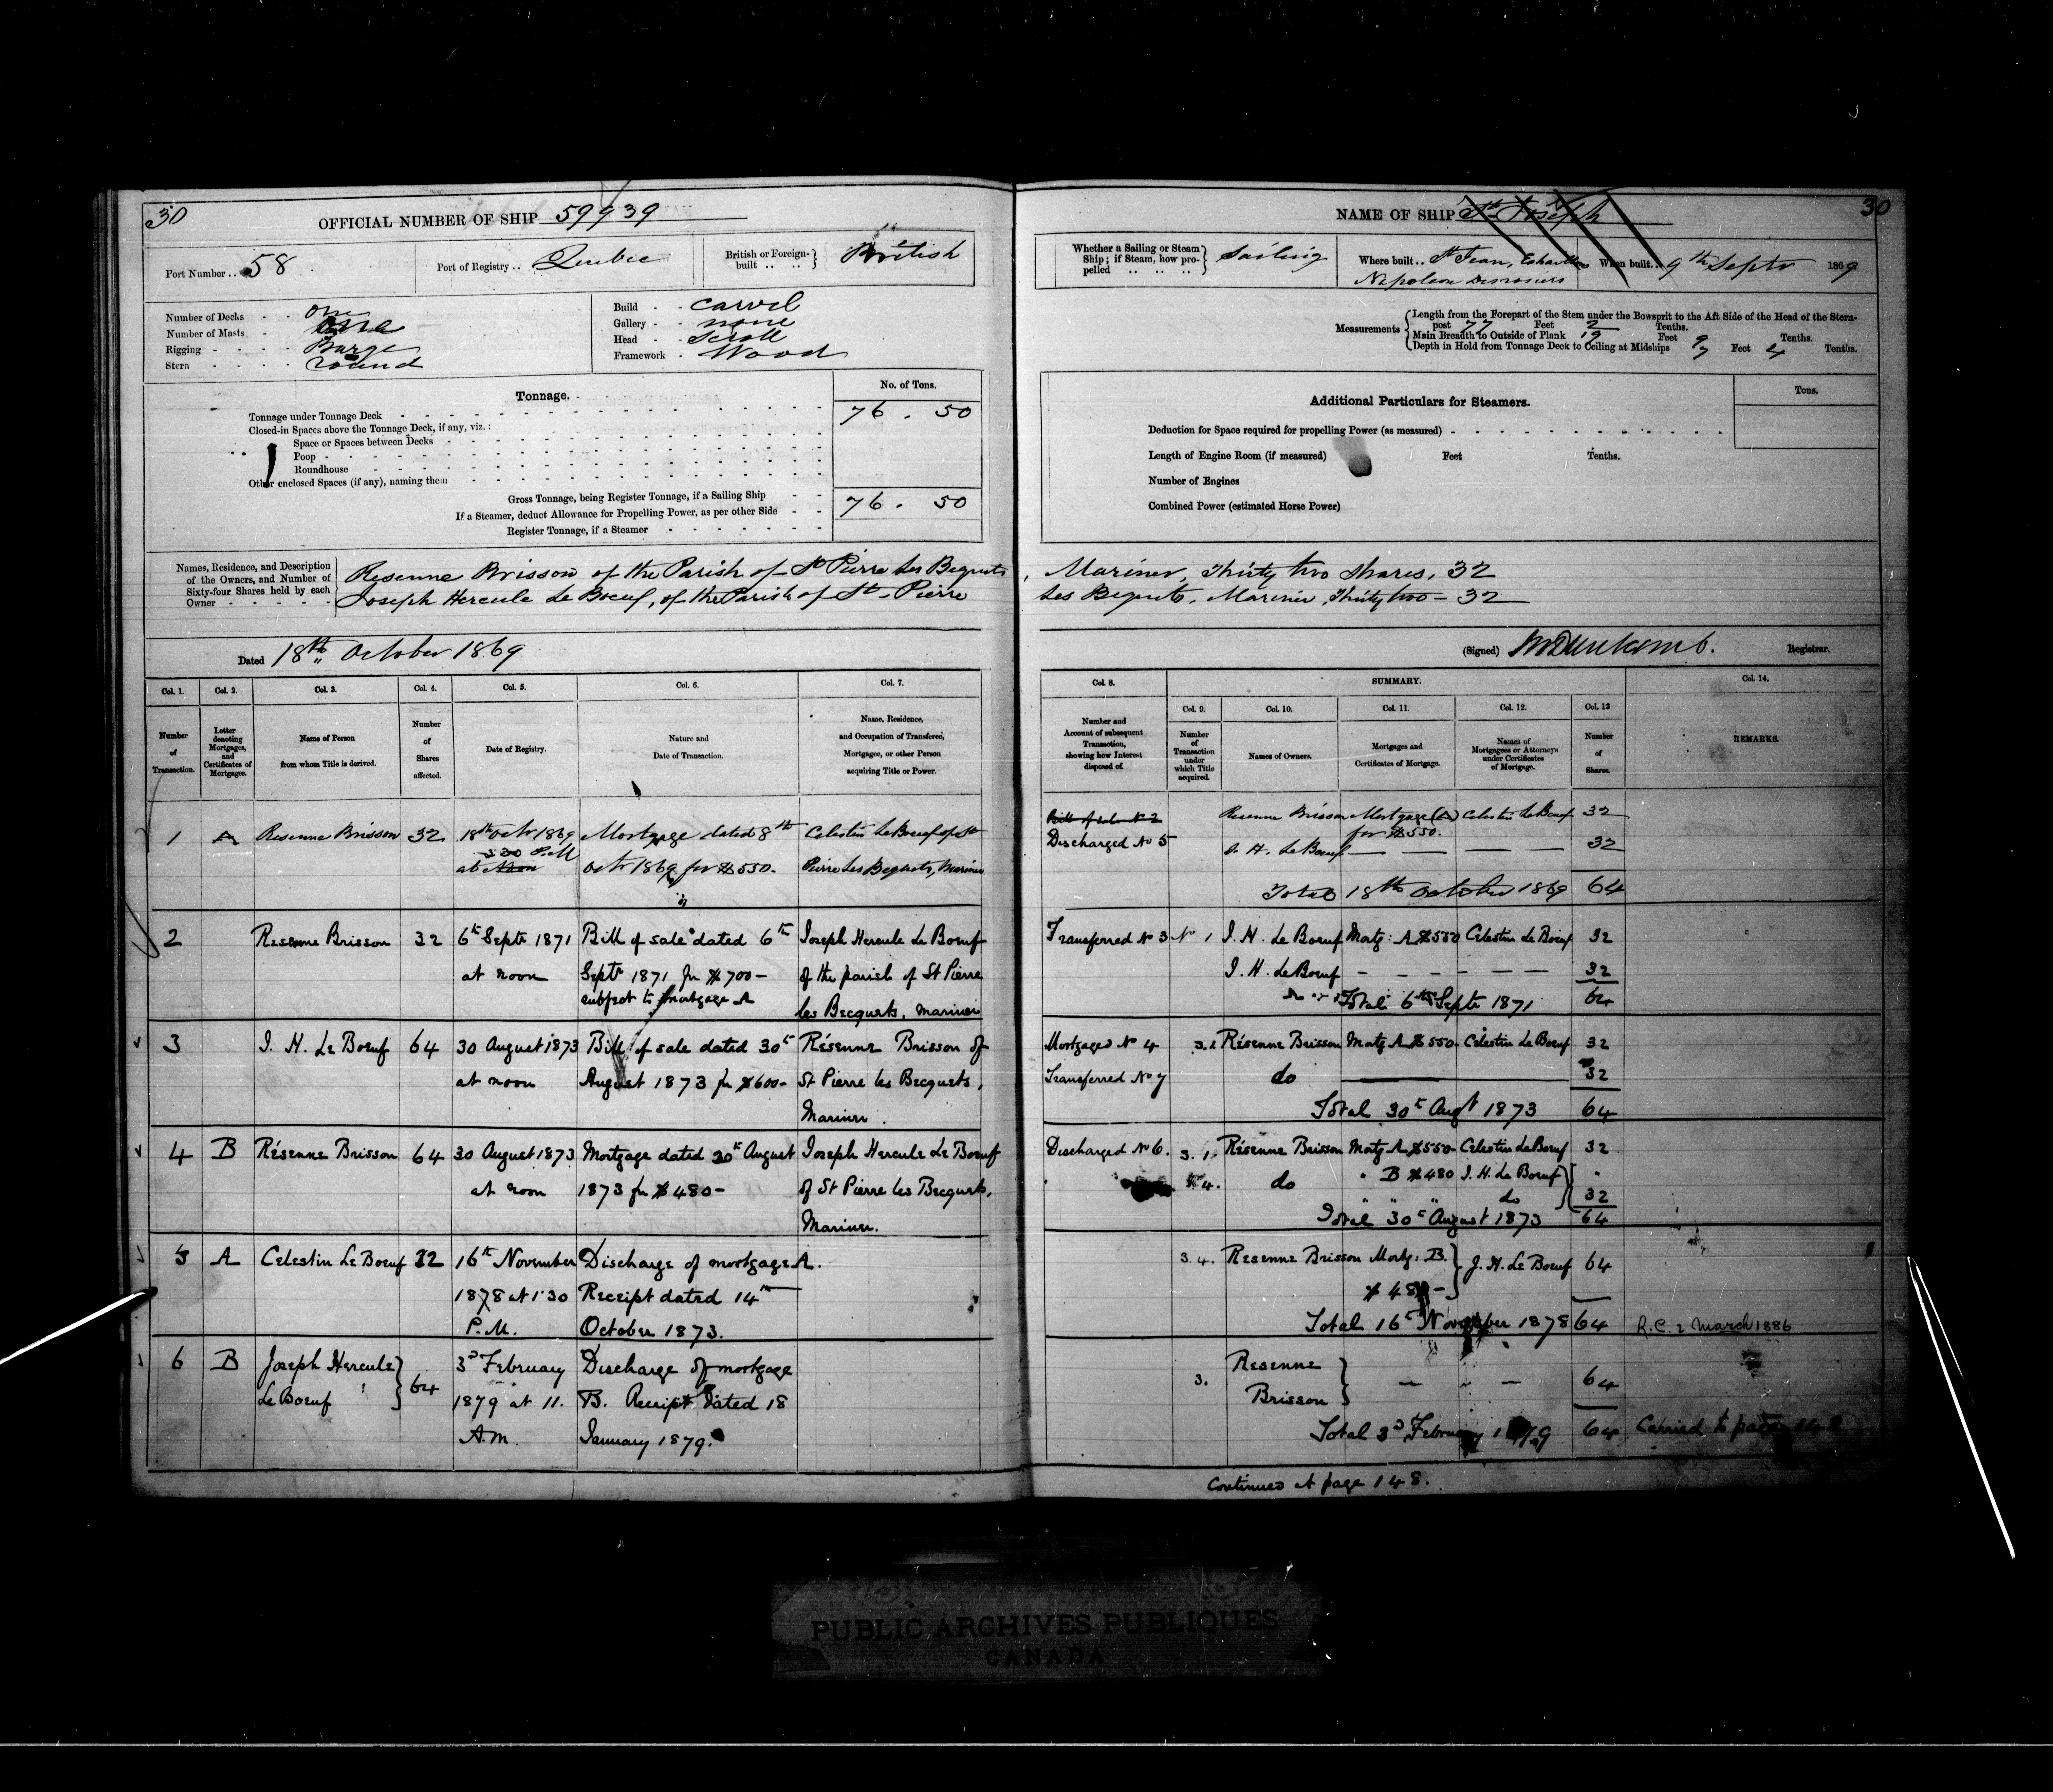 30
OFFICIAL NUMBER OF SHIP 59939
Port Number .. 58
Port of Registry .. Quebec
British or Foreign-built .. .. } British
Number of Decks - - one
Number of Masts - - one
Rigging - - - - Barge
Stern - - - - round
Build - - carvel
Gallery - - none
Head - - Scroll
Framework - Wood
Tonnage.
No. of Tons.
Tonnage under Tonnage Deck 76 . 50
Closed-in Spaces above the Tonnage Deck, if any, viz.:
Space or Spaces between Decks
Poop
Roundhouse
Other enclosed Spaces (if any), naming them
Gross Tonnage, being Register Tonnage, if a Sailing Ship 76 . 50
If a Steamer, deduct Allowance for Propelling Power, as per other Side
Register Tonnage, if a Steamer
Names, Residence, and Description
of the Owners, and Number of
Sixty-four Shares held by each
Owner
Resenne Brisson of the Parish of St Pierre Les Bequets
Joseph Hercule Le Boeuf, of the Parish of St Pierre
Dated 18th October 1869
Col. 1. Col. 2. Col. 3. Col. 4. Col. 5. Col. 6. Col. 7.
Number of Transaction.
Letter denoting Mortgages, and Certificates of Mortgages.
Name of Person from whom Title is derived.
Number of Shares affected.
Date of Registry.
Nature and Date of Transaction.
Name, Residence, and Occupation of Transferee, Mortgagee, or other Person acquiring Title or Power.
1 A Resenne Brisson 32 18th Octr 1869 Mortgage dated 8th Celestin Le Boeuf of St
3 30 P.M
at Noon Octr 1869 for $550. Pierre Les Bequets, Mariner
2 Resenne Brisson 32 6th Septr 1871 Bill of sale dated 6th Joseph Hercule Le Boeuf
at noon Septr 1871 for $700– of the parish of St Pierre
subject to mortgage A les Becquets, Mariner
3 J. H. Le Boeuf 64 30 August 1873 Bill of sale dated 30th Résenne Brisson of
at noon August 1873 for $600– St Pierre les Becquets,
Mariner.
4 B Résenne Brisson 64 30 August 1873 Mortgage dated 30th August Joseph Hercule Le Boeuf
at noon 1873 for $480– of St Pierre les Becquets,
Mariner.
5 A Celestin Le Boeuf 32 16th November Discharge of mortgage A.
1878 at 1.30 Receipt dated 14th
P.M. October 1873.
6 B Joseph Hercule 64 3d February Discharge of mortgage
Le Boeuf 1879 at 11. B. Receipt dated 18
A.M. January 1879.
NAME OF SHIP St Joseph
30
Whether a Sailing or Steam Ship; if Steam, how propelled .. .. .. } Sailing
Where built .. St Jean,
Napoleon Desrosiers
When built .. 9th Septr 1869
Measurements
Length from the Forepart of the Stem under the Bowsprit to the Aft Side of the Head of the Stern-
post 77 Feet 2 Tenths.
Main Breadth to Outside of Plank 19 Feet 9 Tenths.
Depth in Hold from Tonnage Deck to Ceiling at Midships 7 Feet 4 Tenths.
Additional Particulars for Steamers.
Tons.
Deduction for Space required for propelling Power (as measured)
Length of Engine Room (if measured) Feet Tenths.
Number of Engines
Combined Power (estimated Horse Power)
, Mariner, Thirty two shares, 32
Les Bequets, Mariner, Thirty two – 32
(Signed) Registrar.
Col. 8. SUMMARY. Col. 14.
Col. 9. Col. 10. Col. 11. Col. 12. Col. 13
Number and Account of subsequent Transaction, showing how Interest disposed of.
Number of Transaction under which Title acquired.
Names of Owners.
Mortgages and Certificates of Mortgage.
Names of Mortgagees or Attorneys under Certificates of Mortgage.
Number of Shares.
REMARKS.
Bill of sale No 2 Resenne Brisson Mortgage (A) Celestin Le Boeuf 32
for $550.
Discharged No 5 J. H. Le Boeuf — — — — 32
Total 18th October 1869 64
Transferred No 3 No 1 J. H. Le Boeuf Mortg: A $550 Celestin Le Boeuf 32
J. H. Le Boeuf – – – – – – 32
Total 6th Septr 1871 64
Mortgaged No 4 Résenne Brisson Mortg A $550 Celestin Le Boeuf 32
Transferred No 7 do 32
Total 30th Augt 1873 64
Discharged No 6. 3. 1. Résenne Brisson Mortg A $550– Celestin Le Boeuf 32
4. do " B $480 J. H. Le Boeuf "
" " " do 32
Total 30th August 1873 64
3. 4. Resenne Brisson Mortg: B. J. H. Le Boeuf 64
$480–
Total 16th November 1878 64 R.C. 2 March 1886
3. Resenne
Brisson — – — 64
Total 3d February 1879 64 Carried to page 148
Continued at page 148.
PUBLIC ARCHIVES PUBLIQUES
CANADA